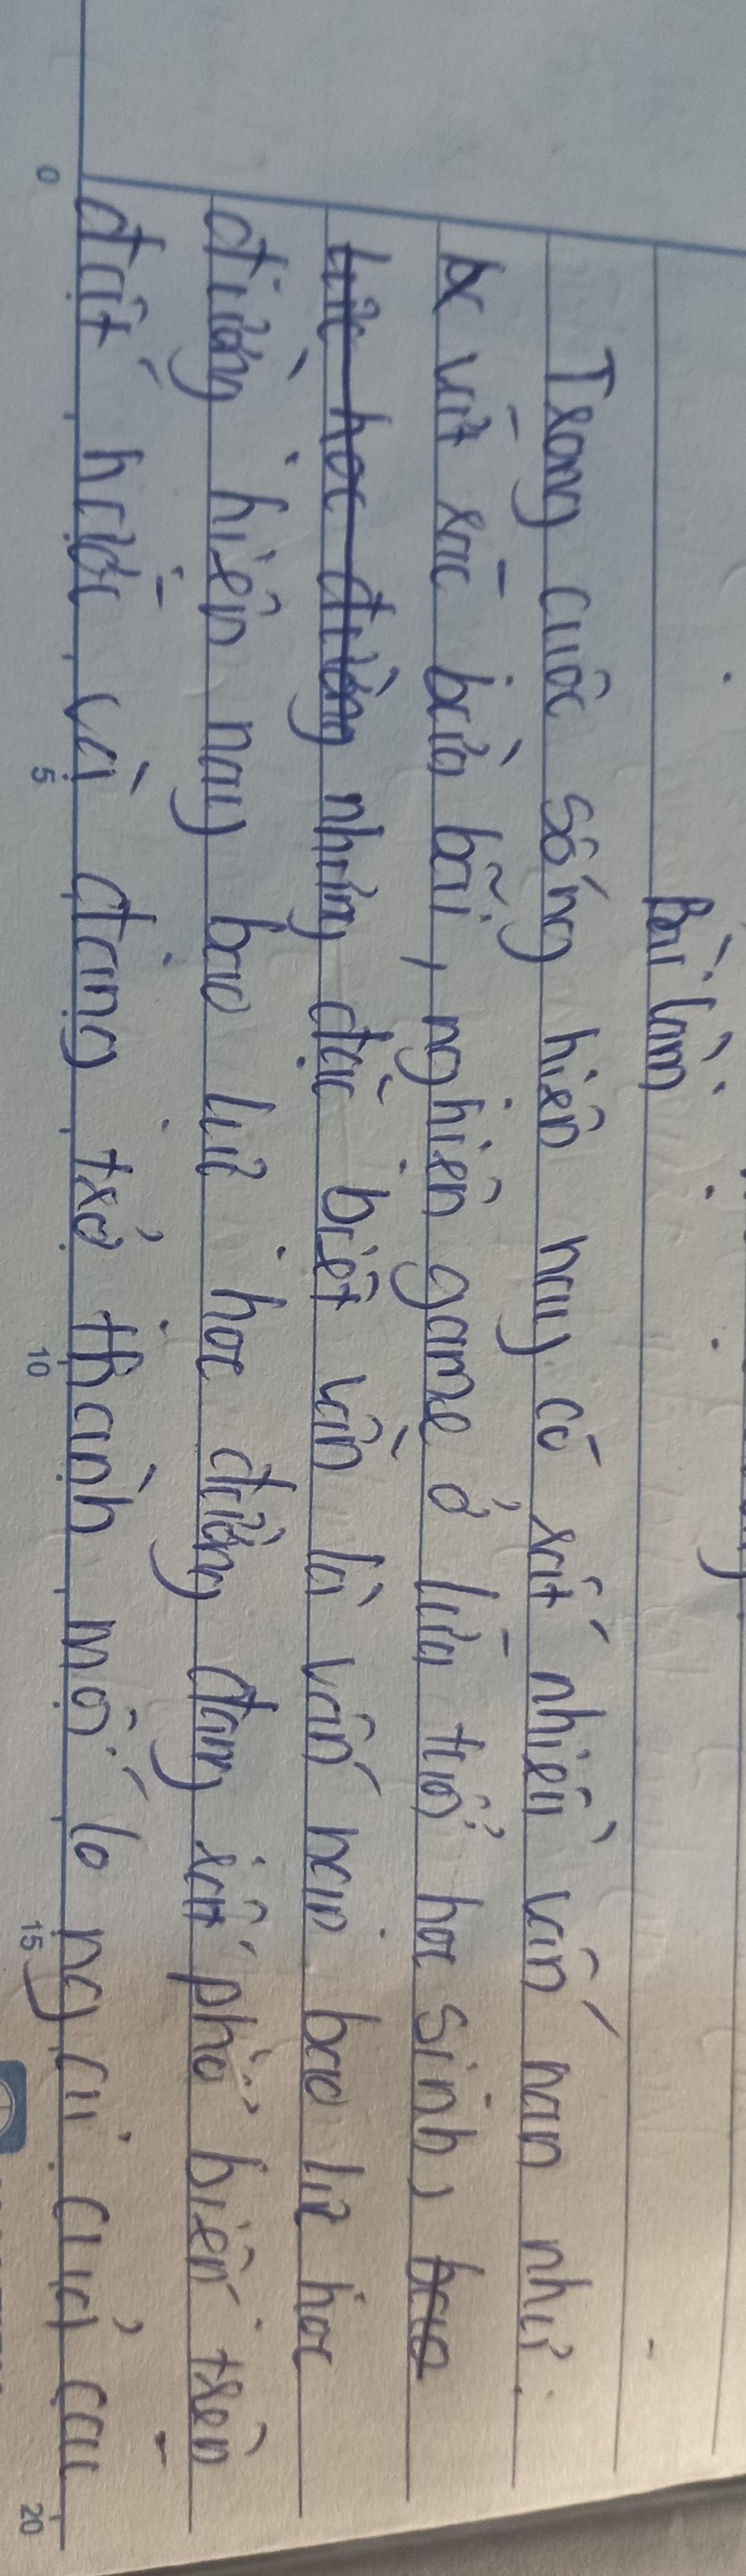 Bài làm
Trong cuộc sống hiện nay có rất nhiều vấn nạn như:
vứt rác bừa bãi, nghiện game ở lứa tuổi học sinh, bạo
lực học đường nhưng đặc biệt vẫn là vấn nạn bạo lực học
đường hiện nay bạo lực học đường đang rất phổ biến trên
đất nước và đang trở thành mối lo ngại của các
0 5 10 15 20